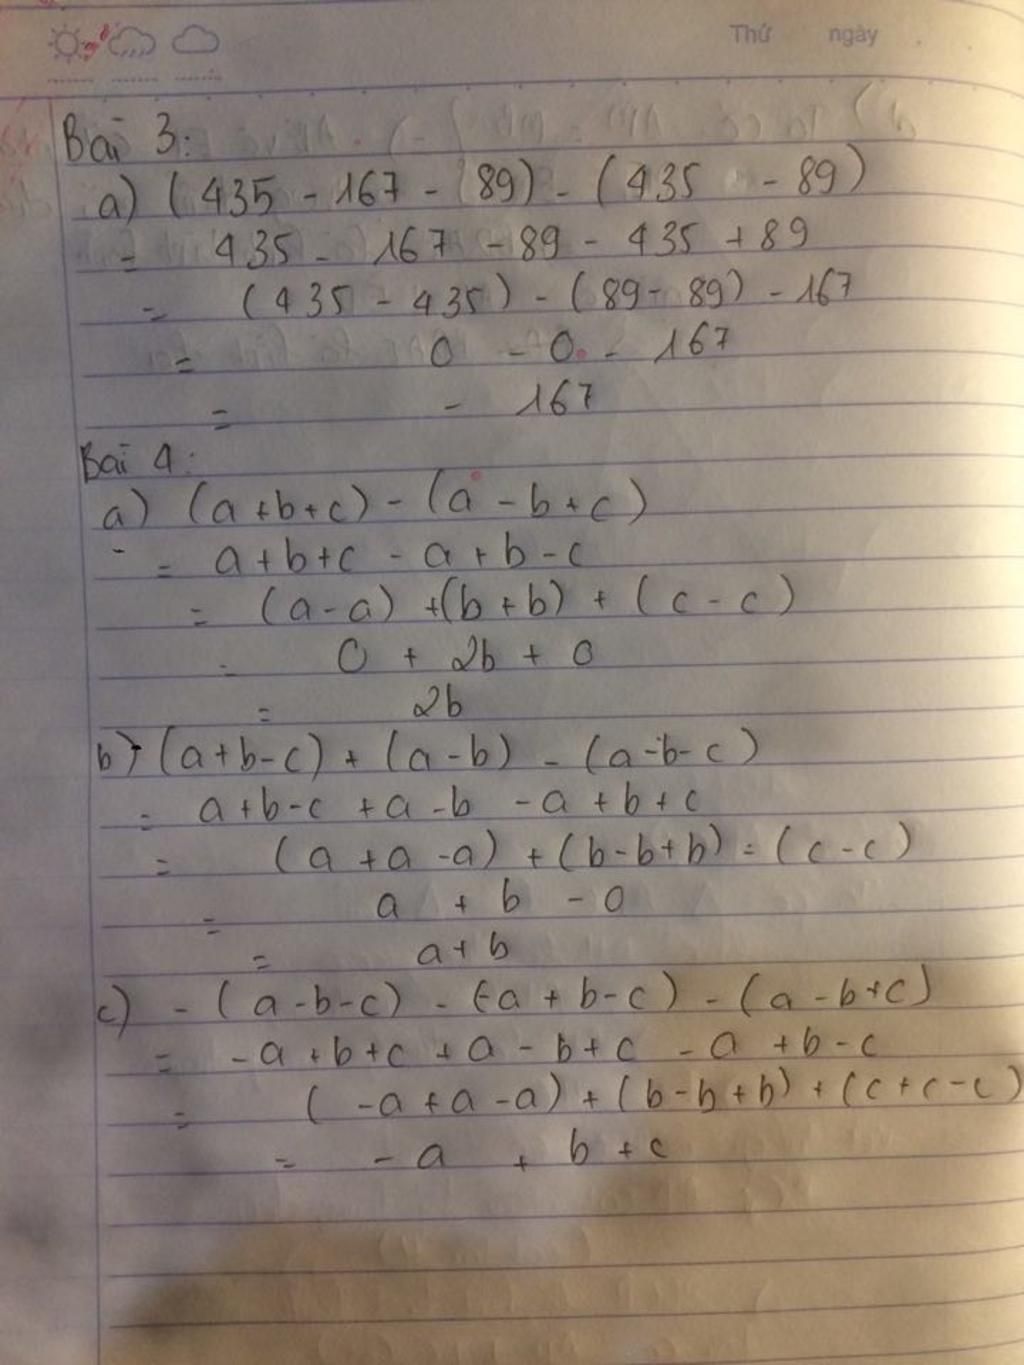 Thứ ngày
Bài 3:
a) (435 - 167 - 89) - (435 - 89)
= 435 - 167 - 89 - 435 + 89
= (435 - 435) - (89 - 89) - 167
= 0 - 0 - 167
= - 167
Bài 4:
a) (a+b+c) - (a - b+c)
= a+b+c - a + b - c
= (a-a) +(b+b) + (c-c)
= 0 + 2b + 0
= 2b
b) (a+b-c) + (a-b) - (a-b-c)
= a+b-c +a -b -a +b+c
= (a +a -a) + (b-b+b) = (c-c)
= a + b - 0
= a+ b
c) - (a-b-c) - (-a + b-c) - (a -b+c)
= -a +b+c +a - b+c - a +b-c
= (-a+a-a) + (b-b+b) + (c+c-c)
= - a + b +c